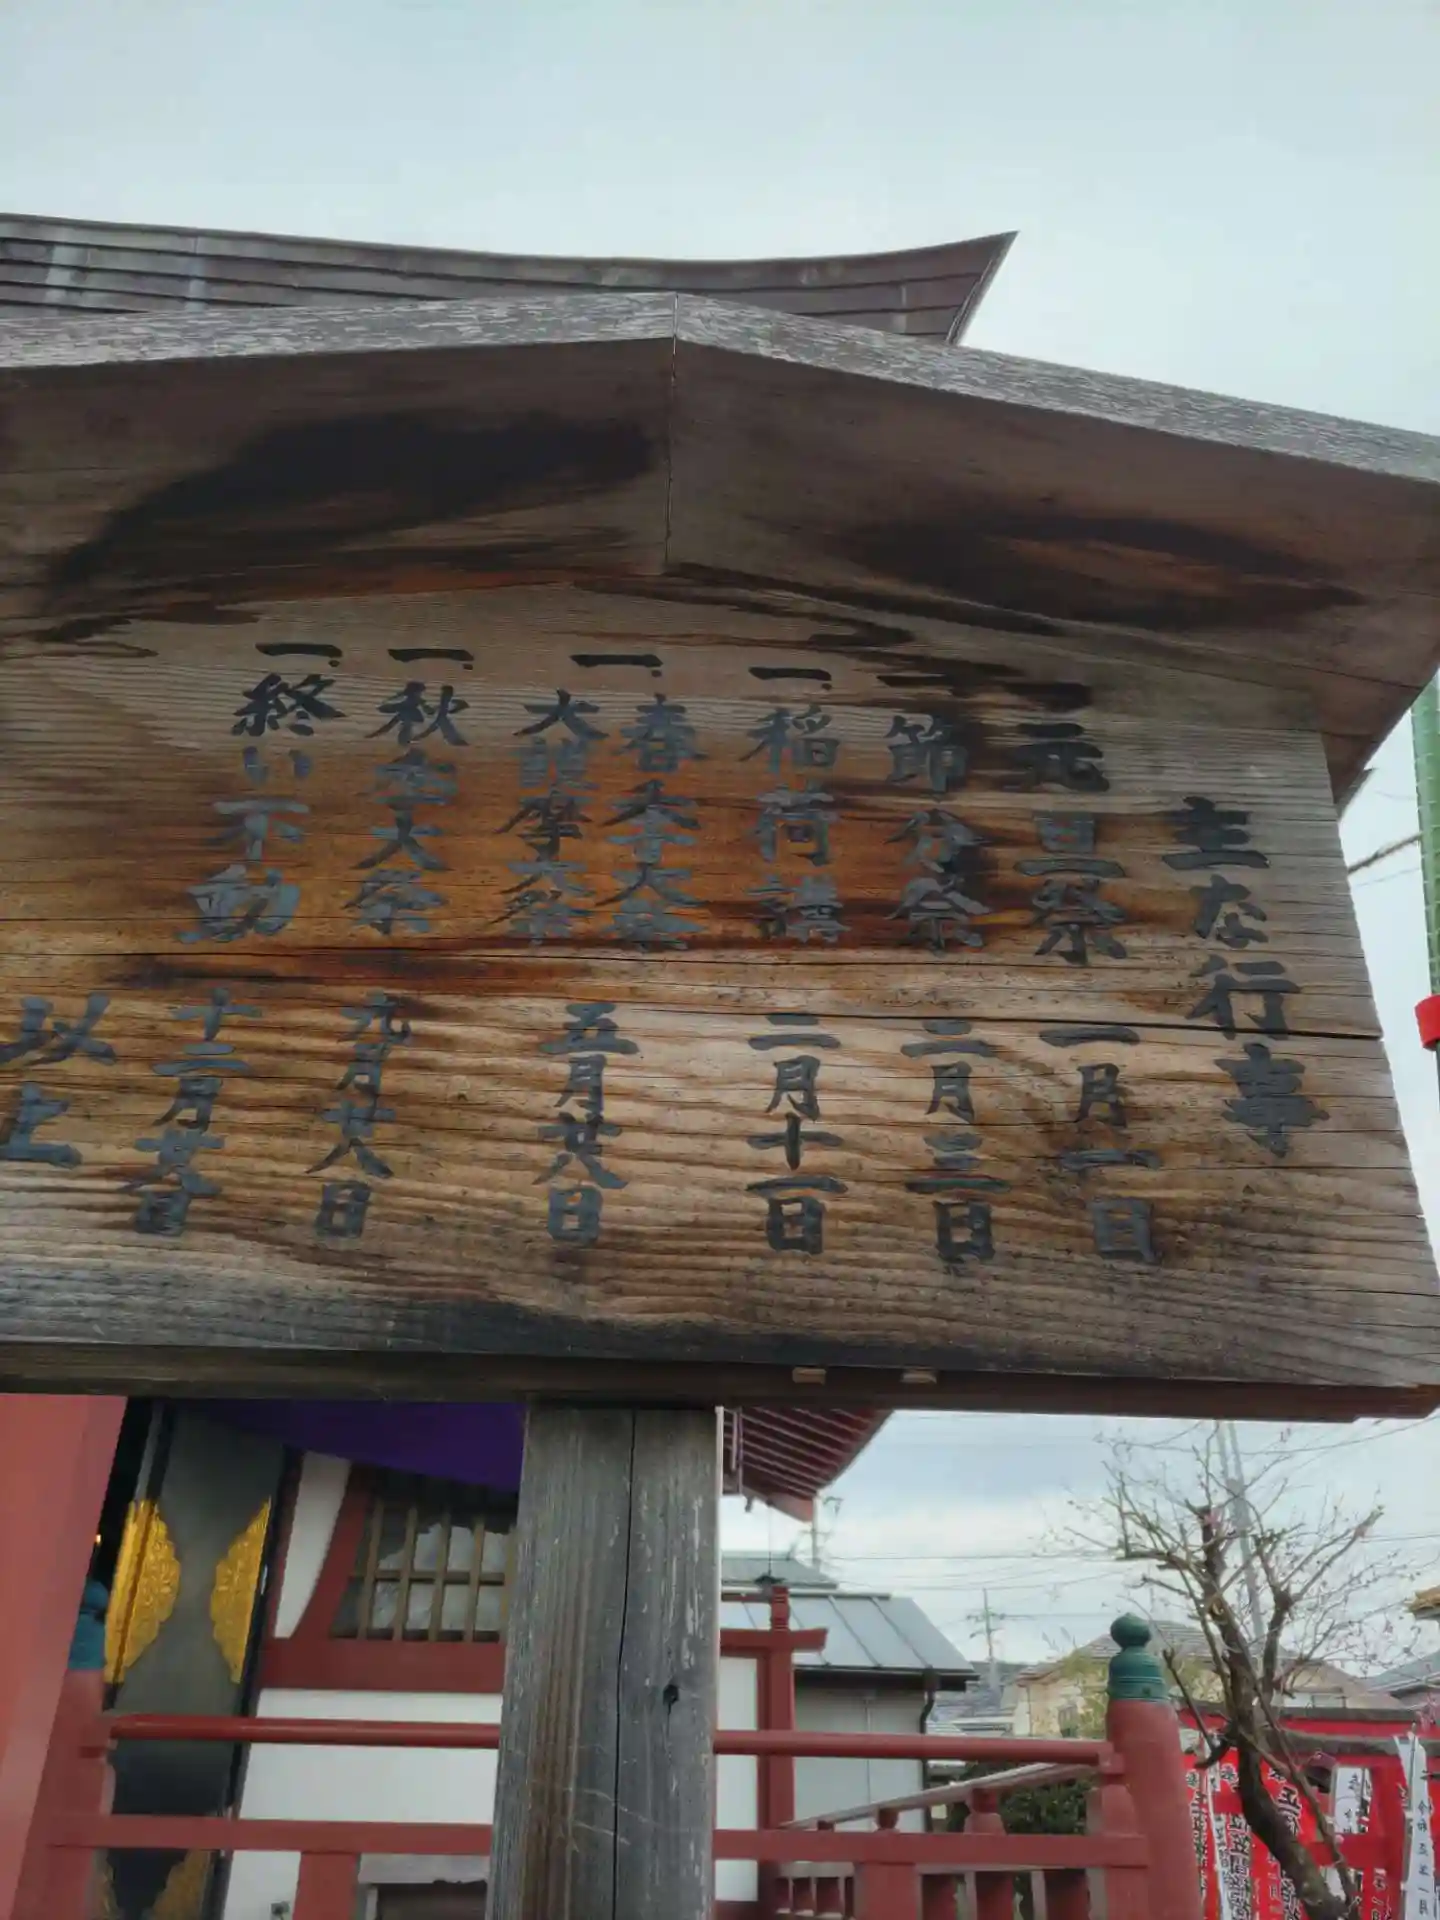 主な行事
一、元旦祭 一月一日
一、節分祭 二月三日
一、稲荷講 二月十一日
一、春季大祭
大護摩大祭 五月廿八日
一、秋季大祭 九月廿八日
一、終い不動 十二月廿八日
以上